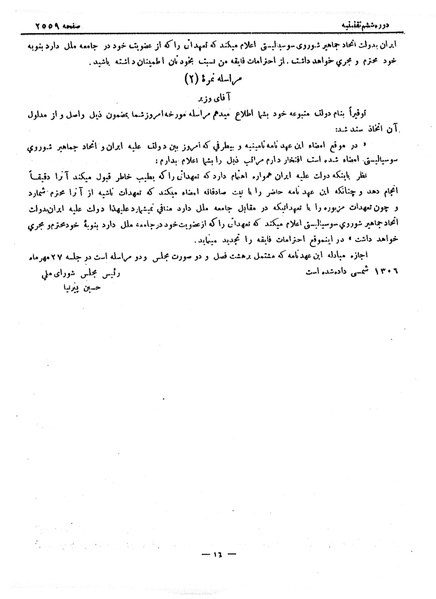 دوره ششم تقنینیه
صفحه ۲۵۵۹
ایران بدولت اتحاد جماهیر شوروی سوسیالیستی اعلام میکند که تعهداتی را که از عضویت خود در جامعه ملل دارد بنوبه
خود محترم و مجری خواهد داشت. از احترامات فایقه من نسبت بخودتان اطمینان داشته باشید.
مراسله نمرهٔ (۲)
آقای وزیر
توقیراً بنام دولت متبوعه خود بشما اطلاع میدهم مراسله مورخه امروز شما بمضمون ذیل واصل و از مدلول
آن اتخاذ سند شد:
« در موقع امضاء این عهدنامه تأمینیه و بیطرفی که امروز بین دولت علیه ایران و اتحاد جماهیر شوروی
سوسیالیستی امضاء شده است افتخار دارم مراتب ذیل را بشما اعلام بدارم:
نظر باینکه دولت علیه ایران همواره اهتمام دارد که تعهداتی را که بطیب خاطر قبول میکند آنرا دقیقاً
انجام دهد و چنانکه این عهدنامه حاضر را با نیت صادقانه امضاء میکند که تعهدات ناشیه از آنرا محترم شمارد
و چون تعهدات مزبوره را با تعهداتیکه در مقابل جامعه ملل دارد منافی نمیشمارد علیهذا دولت علیه ایران بدولت
اتحاد جماهیر شوروی سوسیالیستی اعلام میکند که تعهداتی را که از عضویت خود در جامعه ملل دارد بنوبهٔ خود محترم و مجری
خواهد داشت » در اینموقع احترامات فایقه را تجدید مینماید.
اجازه مبادله این عهدنامه که مشتمل برهشت فصل و دو صورت مجلس و دو مراسله است در جلسه ۲۷ مهرماه
۱۳۰۶ شمسی داده شده است
رئیس مجلس شورای ملی
حسین پیرنیا
— ١٦ —